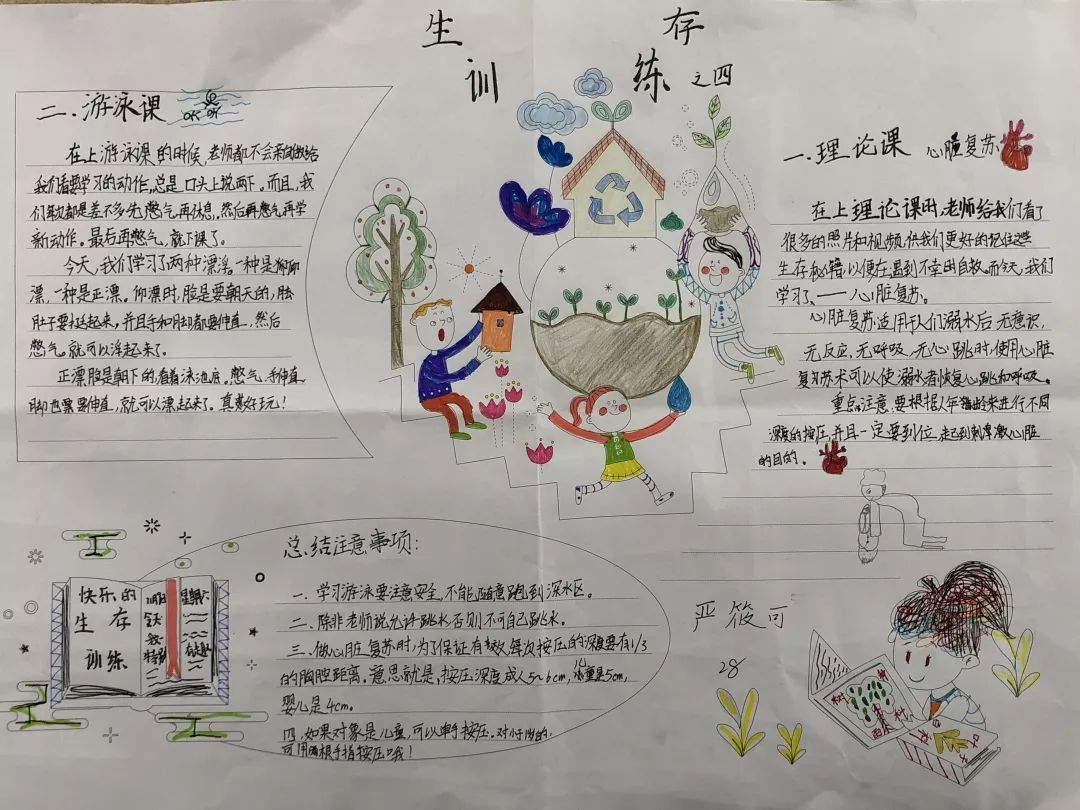 生存
训练之四
一.理论课 心脏复苏
在上理论课时,老师给我们看了
很多的照片和视频,供我们更好的记住这些
生存秘籍,以便在遇到不幸时自救。而今天,我们
学习了、——心脏复苏。
心脏复苏适用于人们溺水后,无意识,
无反应,无呼吸,无心跳时,使用心脏
复苏术可以使溺水者恢复心跳和呼吸。
重点。注意,要根据人年龄来进行不同
深度的按压,并且一定要到位,起到刺激心脏
的目的。
二.游泳课
在上游泳课的时候,老师都不会亲自做给
我们看要学习的动作,总是口头上说两下。而且,我
们每次都是差不多先憋气,再休息。然后再憋气,再学
新动作。最后再憋气,就下课了。
今天,我们学习了两种漂浮,一种是仰
漂,一种是正漂。仰漂时,脸是要朝天的,
肚子要挺起来,并且手和脚都要伸直,然后
憋气。就可以浮起来了。
正漂脸是朝下的,看着泳池底。憋气,手伸直,
脚也要伸直,就可以漂起来了。真好玩!
总结注意事项:
一、学习游泳要注意安全,不能随意跑到深水区。
二、除非老师说允许跳水,否则不可自己跳水。
三、做心脏复苏时,为了保证有效,每次按压的深度要有1/3
的胸腔距离。意思就是,按压深度成人5~6cm,儿童是5cm,
婴儿是4cm。
四、如果对象是儿童,可以单手按压。对小的
可用两根手指按压哦!
快乐的
生存
训练
严筱可
28